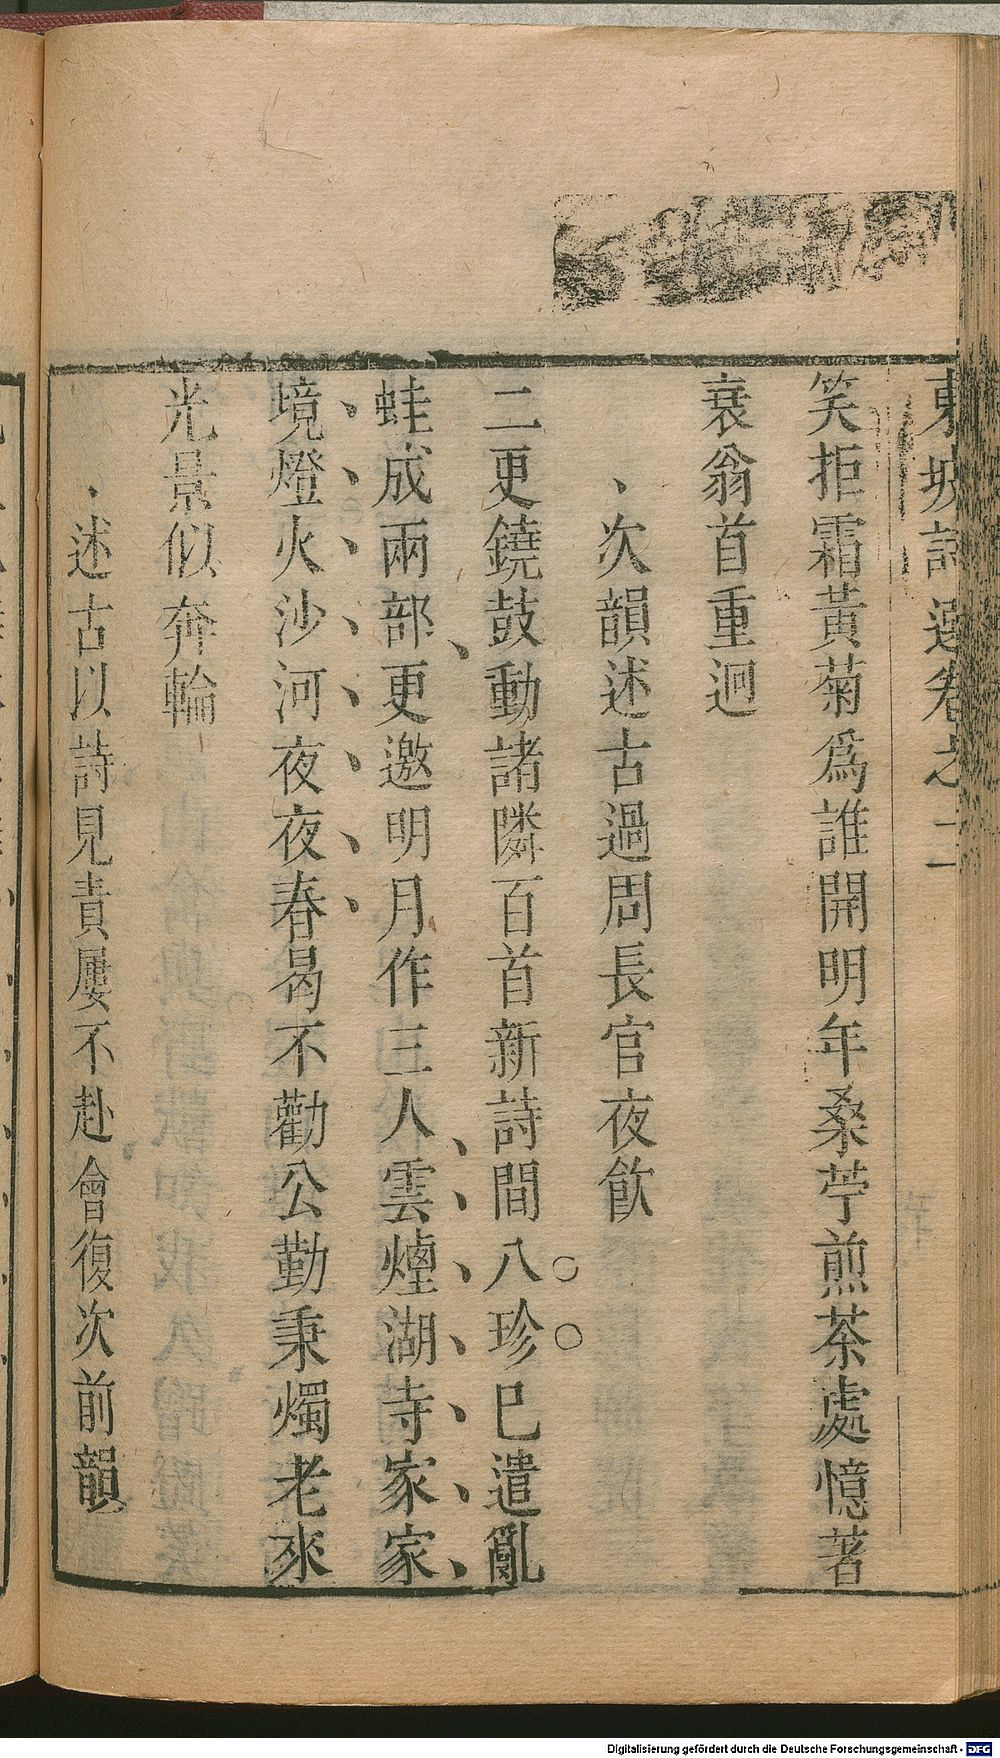 東坡詩選卷之二
笑拒霜黃菊爲誰開明年桑苧煎茶處憶著
衰翁首重迴
、次韻述古過周長官夜飲
二更鐃鼓動諸隣百首新詩間八珍巳遣亂
蛙成兩部更邀明月作三人雲煙湖寺家家
境燈火沙河夜夜春曷不勸公勤秉燭老來
光景似奔輪
、述古以詩見責屢不赴會復次前韻
Digitalisierung gefördert durch die Deutsche Forschungsgemeinschaft - DFG